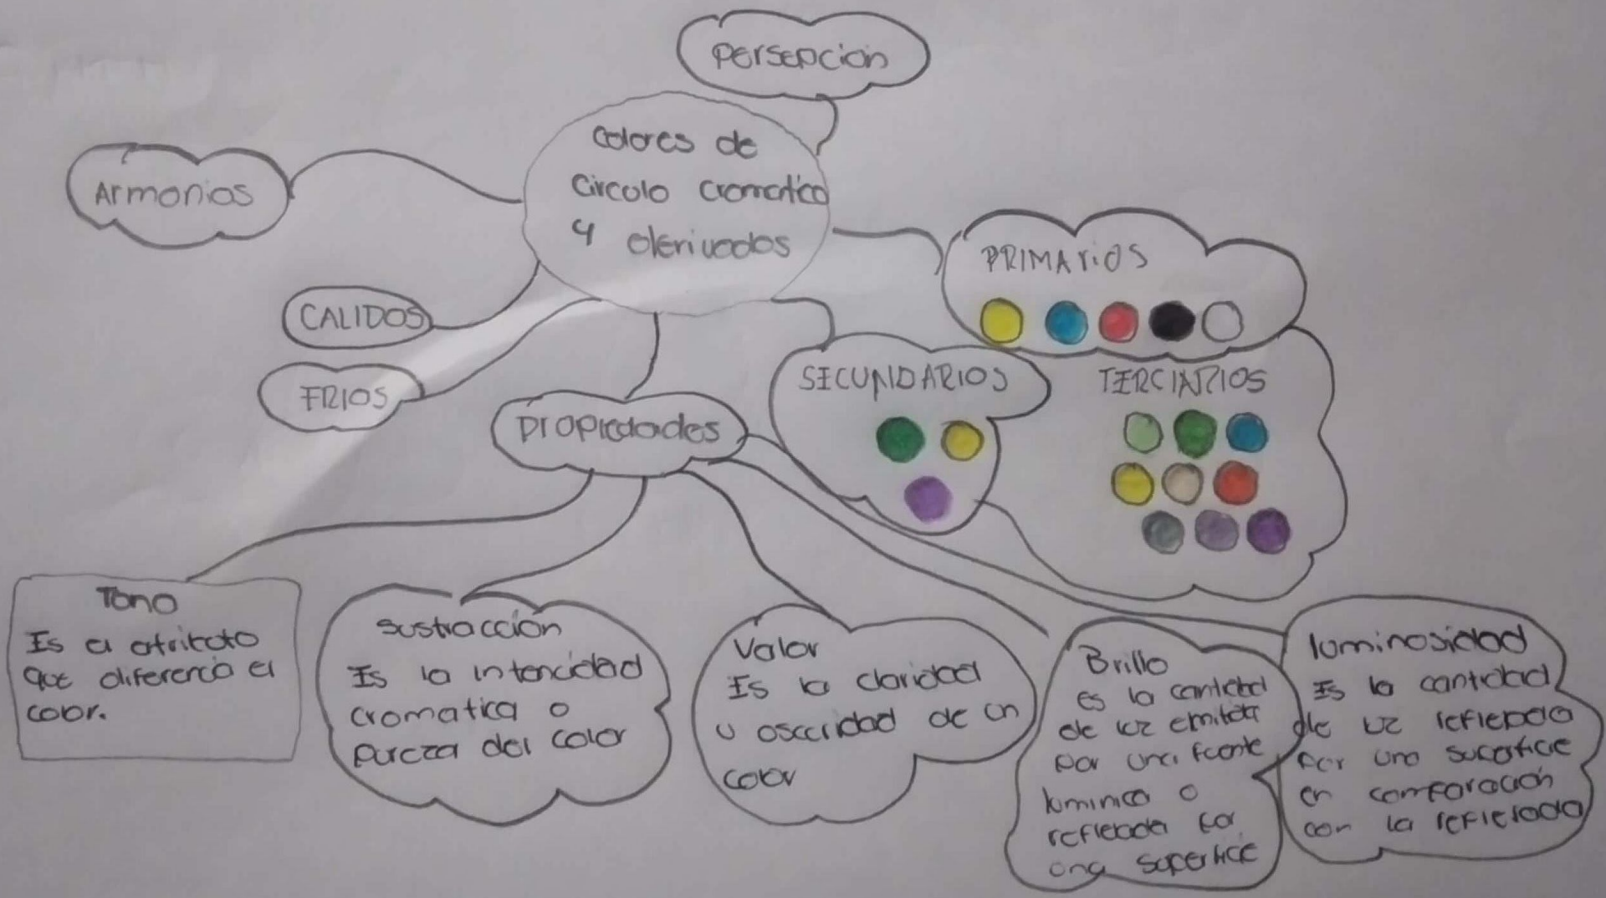 Persepcion
Colores de
Circulo cromatico
y derivados
Armonias
CALIDOS
FRIOS
PRIMARIOS
SECUNDARIOS
TERCIARIOS
Propiedades
Tono
Es el atributo
que diferencia el
color.
Sustracción
Es la intencidad
cromatica o
pureza del color
Valor
Es la claridad
u oscuridad de un
color
Brillo
es la cantidad
de luz emitida
por una fuente
luminica o
reflejada por
una superficie
luminosidad
Es la cantidad
de luz reflejada
por una superficie
en comparación
con la reflejada